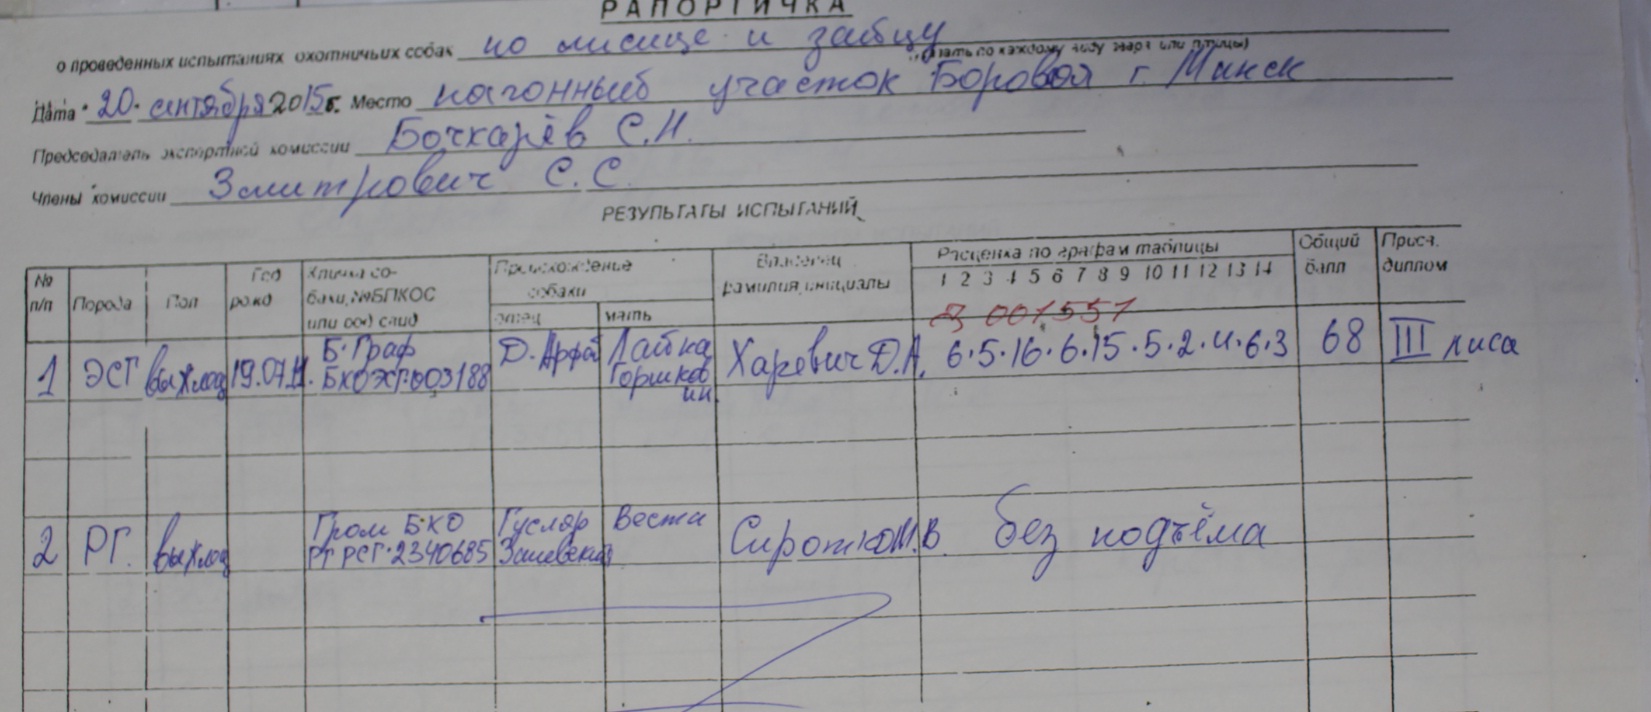 РАПОРТИЧКА
о проведенных испытаниях охотничьих собак по лисице и зайцу
(указать по каждому виду зверя или птицы)
Дата 20 сентября 2015г. Место нагонный участок Боровая г. Минск
Председатель экспертной комиссии Бочкарёв С.Н.
Члены комиссии Змитрович С.С.
РЕЗУЛЬТАТЫ ИСПЫТАНИЙ
№ п/п Порода Пол Год рожд Кличка собаки, №БПКОС или род свид Происхождение собаки отец мать Владелец фамилия, инициалы Расценка по графам таблицы Общий балл Присв. диплом
1 2 3 4 5 6 7 8 9 10 11 12 13 14
001551
1 ЭСГ выжлец 19.07.11. Б. Граф БКОЭСГ-003188 Д. Арфай Лайка Горшков ин. Харевич Д.А. 6·5·16·6·15·5·2·4·6·3 68 III лиса
2 РГ. выжлец Гром БКО РГ РСГ·2340685 Гусляр Веста Сиротко М.В. без подъёма